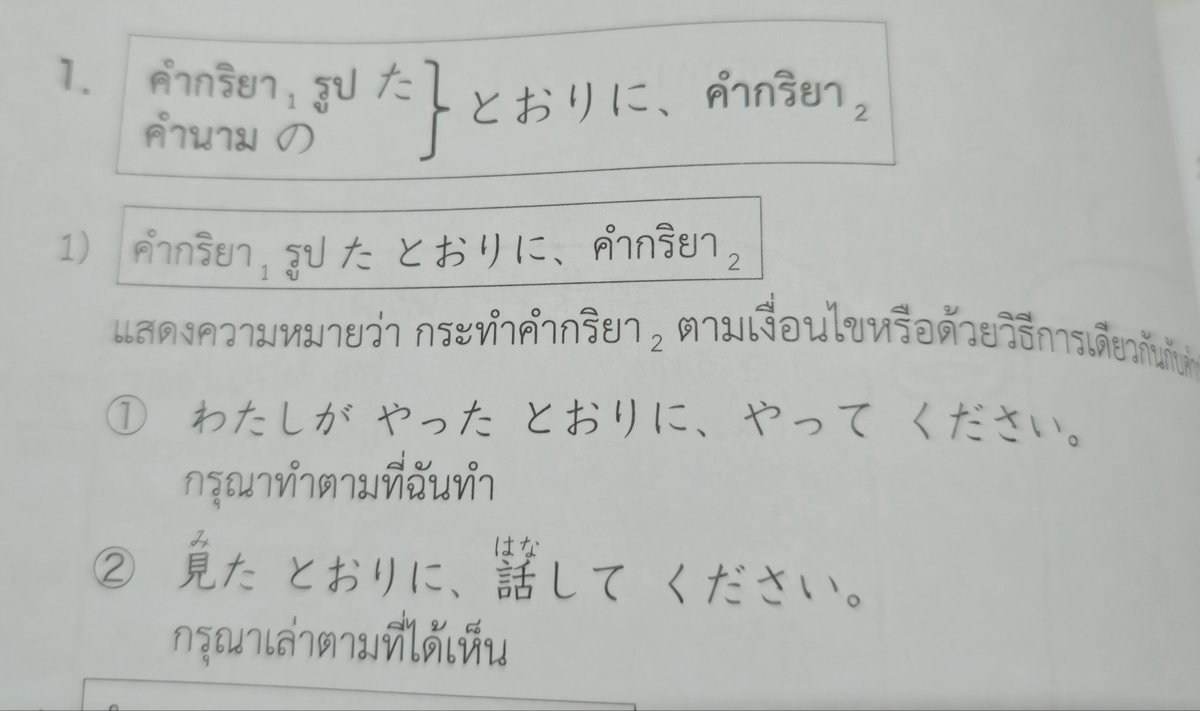 1. คำกริยา₁ รูป た } とおりに、คำกริยา₂
คำนาม の
1) คำกริยา₁ รูป た とおりに、คำกริยา₂
แสดงความหมายว่า กระทำคำกริยา₂ ตามเงื่อนไขหรือด้วยวิธีการเดียวกันกับ
① わたしが やった とおりに、やって ください。
กรุณาทำตามที่ฉันทำ
み はな
② 見た とおりに、話して ください。
กรุณาเล่าตามที่ได้เห็น